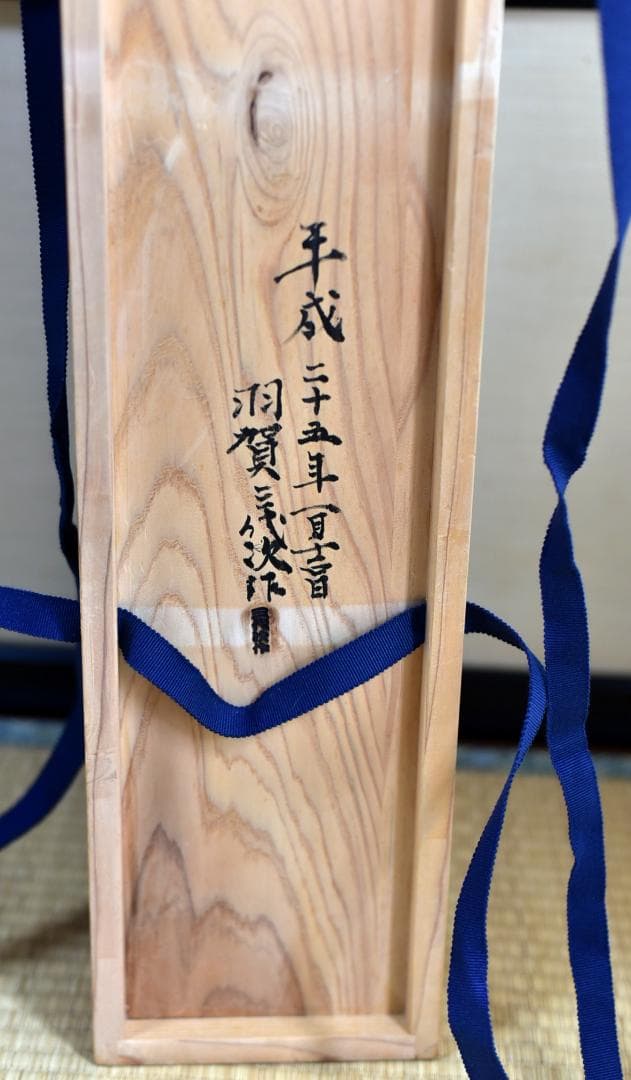 平成二十五年一月吉日
羽賀三代次作